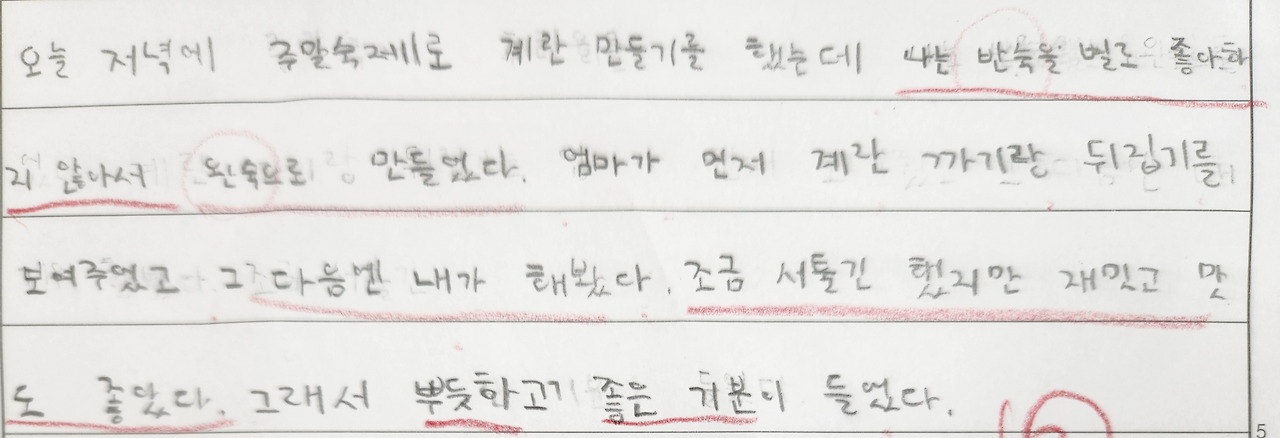 오늘 저녁에 주말숙제로 계란 만들기를 했는데 나는 반숙을 별로 좋아하
지 않아서 완숙으로 만들었다. 엄마가 먼저 계란 까기랑 뒤집기를
보여주었고 그 다음엔 내가 해봤다. 조금 서툴긴 했지만 재밌고 맛
도 좋았다. 그래서 뿌듯하고 좋은 기분이 들었다.
5